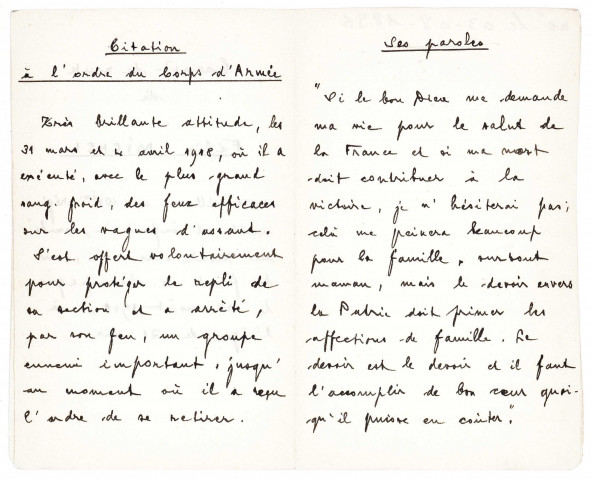 Citation
à l'ordre du Corps d'Armée
Très brillante attitude, les
31 mars et 4 avril 1918, où il a
exécuté, avec le plus grand
sang froid, des feux efficaces
sur les vagues d'assaut.
S'est offert volontairement
pour protéger le repli de
sa section et a arrêté,
par son feu, un groupe
ennemi important, jusqu'
au moment où il a reçu
l'ordre de se retirer.
Ses paroles
"Si le bon Dieu me demande
ma vie pour le salut de
la France et si ma mort
doit contribuer à la
victoire, je n'hésiterai pas;
celà me peinera beaucoup
pour la famille, surtout
maman, mais le devoir envers
la Patrie doit primer les
affections de famille. Le
devoir est le devoir et il faut
l'accomplir de bon cœur quoi-
qu'il puisse en coûter".